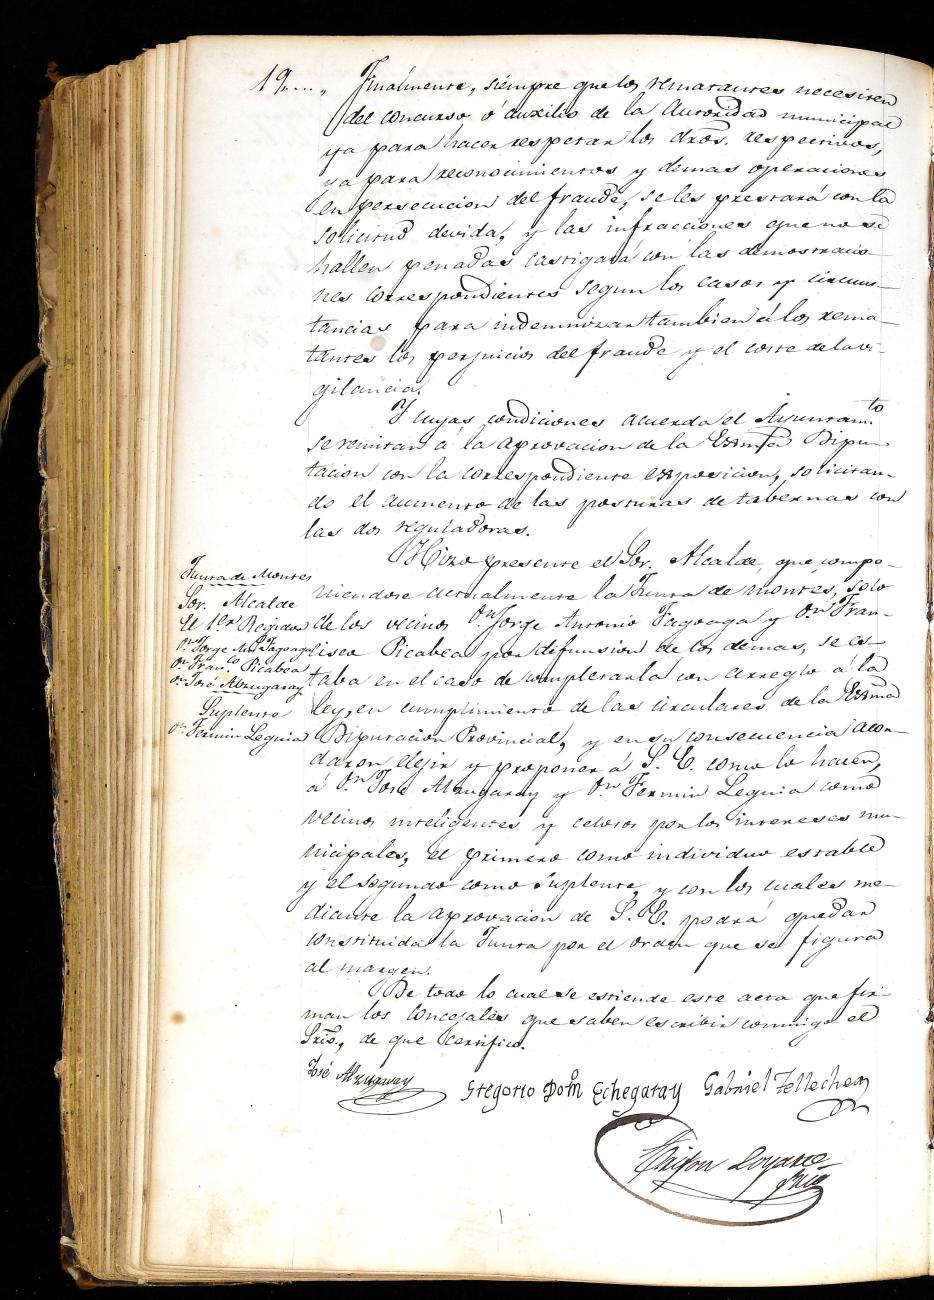 19.... „ Finalmente, siempre que los rematantes necesiten
del concurso ó auxilio de la Autoridad municipal
ya para hacer respetar los dros. respectivos,
ya para reconocimientos y demas operaciones
en persecucion del fraude, se les prestará con la
solicitud devida, y las infracciones que no se
hallen penadas castigará con las demostracio-
nes correspondientes segun los casos y circuns-
tancias para indemnizar tambien á los rema-
tantes los perjuicios del fraude y el coste de la vi-
gilancia.
Y cuyas condiciones acuerda el Ayuntamto
se remitan á la aprovacion de la Exma Dipu-
tacion con la correspondiente exposicion, solicitan-
do el aumento de las posturas de tabernas con
las dos reguladoras.
Hizo presente el Sor. Alcalde, que compo-
niendose actualmente la Junta de montes, solo
de los vecinos Dn Jorge Antonio Fagoaga y Dn Fran-
cisco Picabea por difunsion de los demas, se es-
taba en el caso de completarla con arreglo á la
ley, en cumplimiento de las circulares de la Exma
Diputacion Provincial, y en su consecuencia acor-
daron elejir y proponer á S. E. como lo hacen,
á Dn José Alzugaray y Dn Fermin Leguia como
vecinos inteligentes y celosos por los intereses mu-
nicipales, el primero como individuo estable
y el segundo como Suplente, y con los cuales me-
diante la aprovacion de S. E. podrá quedar
constituida la Junta por el orden que se figura
al margen.
De todo lo cual se estiende este acta que fir-
man los concejales que saben escribir conmigo el
Srio., de que certifico.
Junta de Montes
Sor. Alcalde
El 1er Regidor
Dn Jorge Anto Fagoaga
Dn Franco Picabea
Dn José Alzugaray
Suplente
Dn Fermin Leguia
José Alzugaray
Gregorio Dom Echegaray
Gabriel Tellechea
Loyarte
Srio